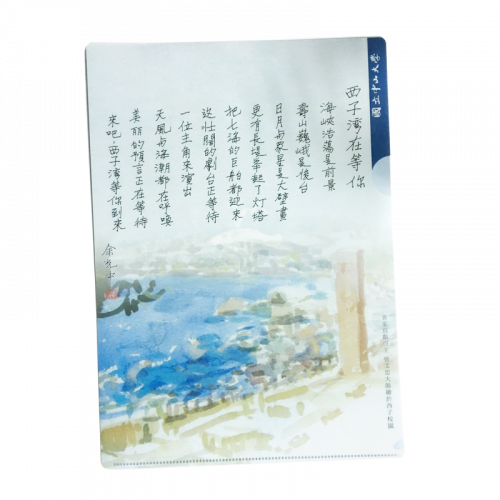 國立中山大學
西子灣在等你
海峽浩蕩是前景
壽山巍峨是後台
日月與眾星是大壁畫
更有長堤舉起了灯塔
把七海的巨舶都迎來
這壯闊的劇台正等待
一位主角來演出
天風與海潮都在呼喚
美麗的預言正在等待
來吧，西子灣等你到來
余光中